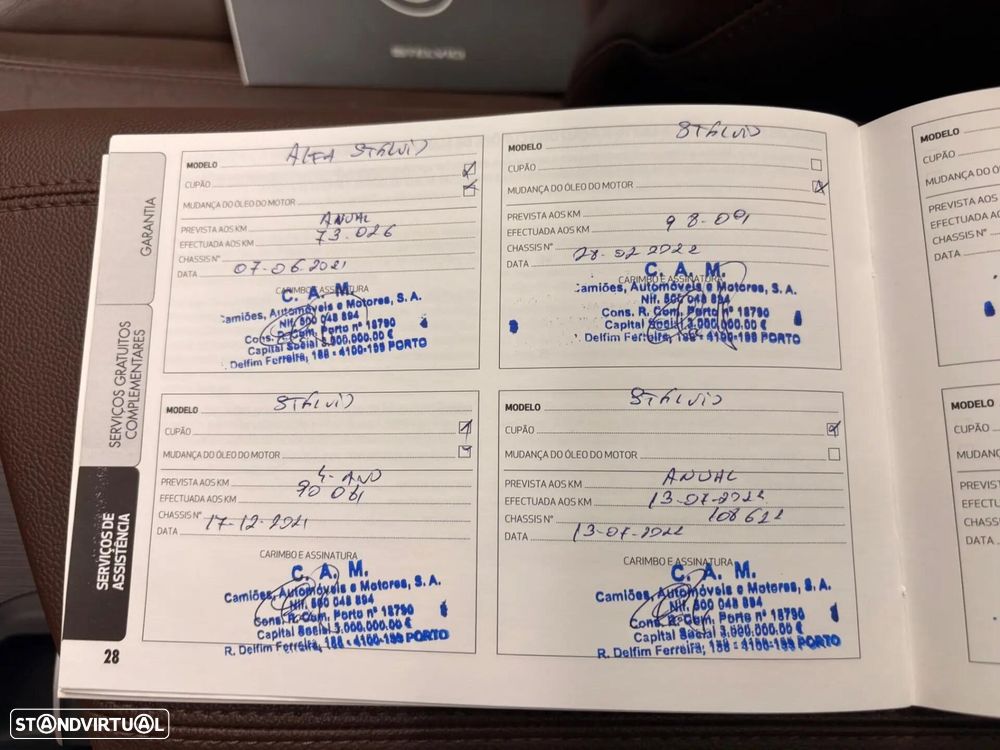 STELVIO
GARANTIA
SERVIÇOS GRATUITOS
COMPLEMENTARES
SERVIÇOS DE
ASSISTÊNCIA
MODELO ALFA STELVIO
CUPÃO
MUDANÇA DO ÓLEO DO MOTOR
PREVISTA AOS KM ANUAL
EFECTUADA AOS KM 73.026
CHASSIS Nº
DATA 07-06-2021
CARIMBO E ASSINATURA
C. A. M.
Camiões, Automóveis e Motores, S. A.
Nif. 500 048 894
Cons. R. Com. Porto nº 18790
Capital Social 3.000.000.00 €
. Delfim Ferreira, 188 - 4100-199 PORTO
MODELO STELVIO
CUPÃO
MUDANÇA DO ÓLEO DO MOTOR
PREVISTA AOS KM
EFECTUADA AOS KM 98.091
CHASSIS Nº
DATA 28-02-2022
CARIMBO E ASSINATURA
C. A. M.
Camiões, Automóveis e Motores, S. A.
Nif. 500 048 894
Cons. R. Com. Porto nº 18790
Capital Social 3.000.000.00 €
. Delfim Ferreira, 188 - 4100-199 PORTO
MODELO STELVIO
CUPÃO
MUDANÇA DO ÓLEO DO MOTOR
PREVISTA AOS KM 4-ANO
EFECTUADA AOS KM 90 061
CHASSIS Nº
DATA 17-12-2021
CARIMBO E ASSINATURA
C. A. M.
Camiões, Automóveis e Motores, S. A.
Nif. 500 048 894
Cons. R. Com. Porto nº 18790
Capital Social 3.000.000.00 €
R. Delfim Ferreira, 188 - 4100-199 PORTO
MODELO STELVIO
CUPÃO
MUDANÇA DO ÓLEO DO MOTOR
PREVISTA AOS KM ANUAL
EFECTUADA AOS KM 13-07-2022
CHASSIS Nº 108622
DATA 13-07-2022
CARIMBO E ASSINATURA
C. A. M.
Camiões, Automóveis e Motores, S. A.
Nif. 500 048 894
Cons. R. Com. Porto nº 18790
Capital Social 3.000.000.00 €
R. Delfim Ferreira, 188 - 4100-199 PORTO
28
MODELO
CUPÃO
MUDANÇA DO Ó
PREVISTA AOS KM
EFECTUADA AO
CHASSIS Nº
DATA
MODELO
CUPÃO
MUDANÇ
PREVIST
EFECTU
CHASS
DATA
STANDVIRTUAL